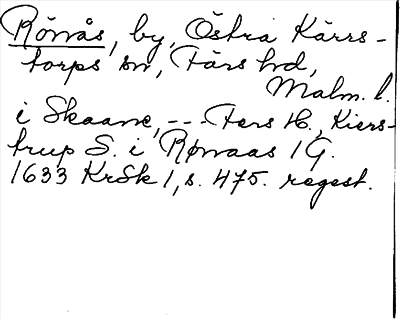 Rönås, by, Östra Kärrs-
torps sn, Färs hd,
Malm. l.
i Skaane, -- Fers H., Kiers-
trup S. i Rønaas 1 G.
1633 KrSk 1, s. 475. regest.